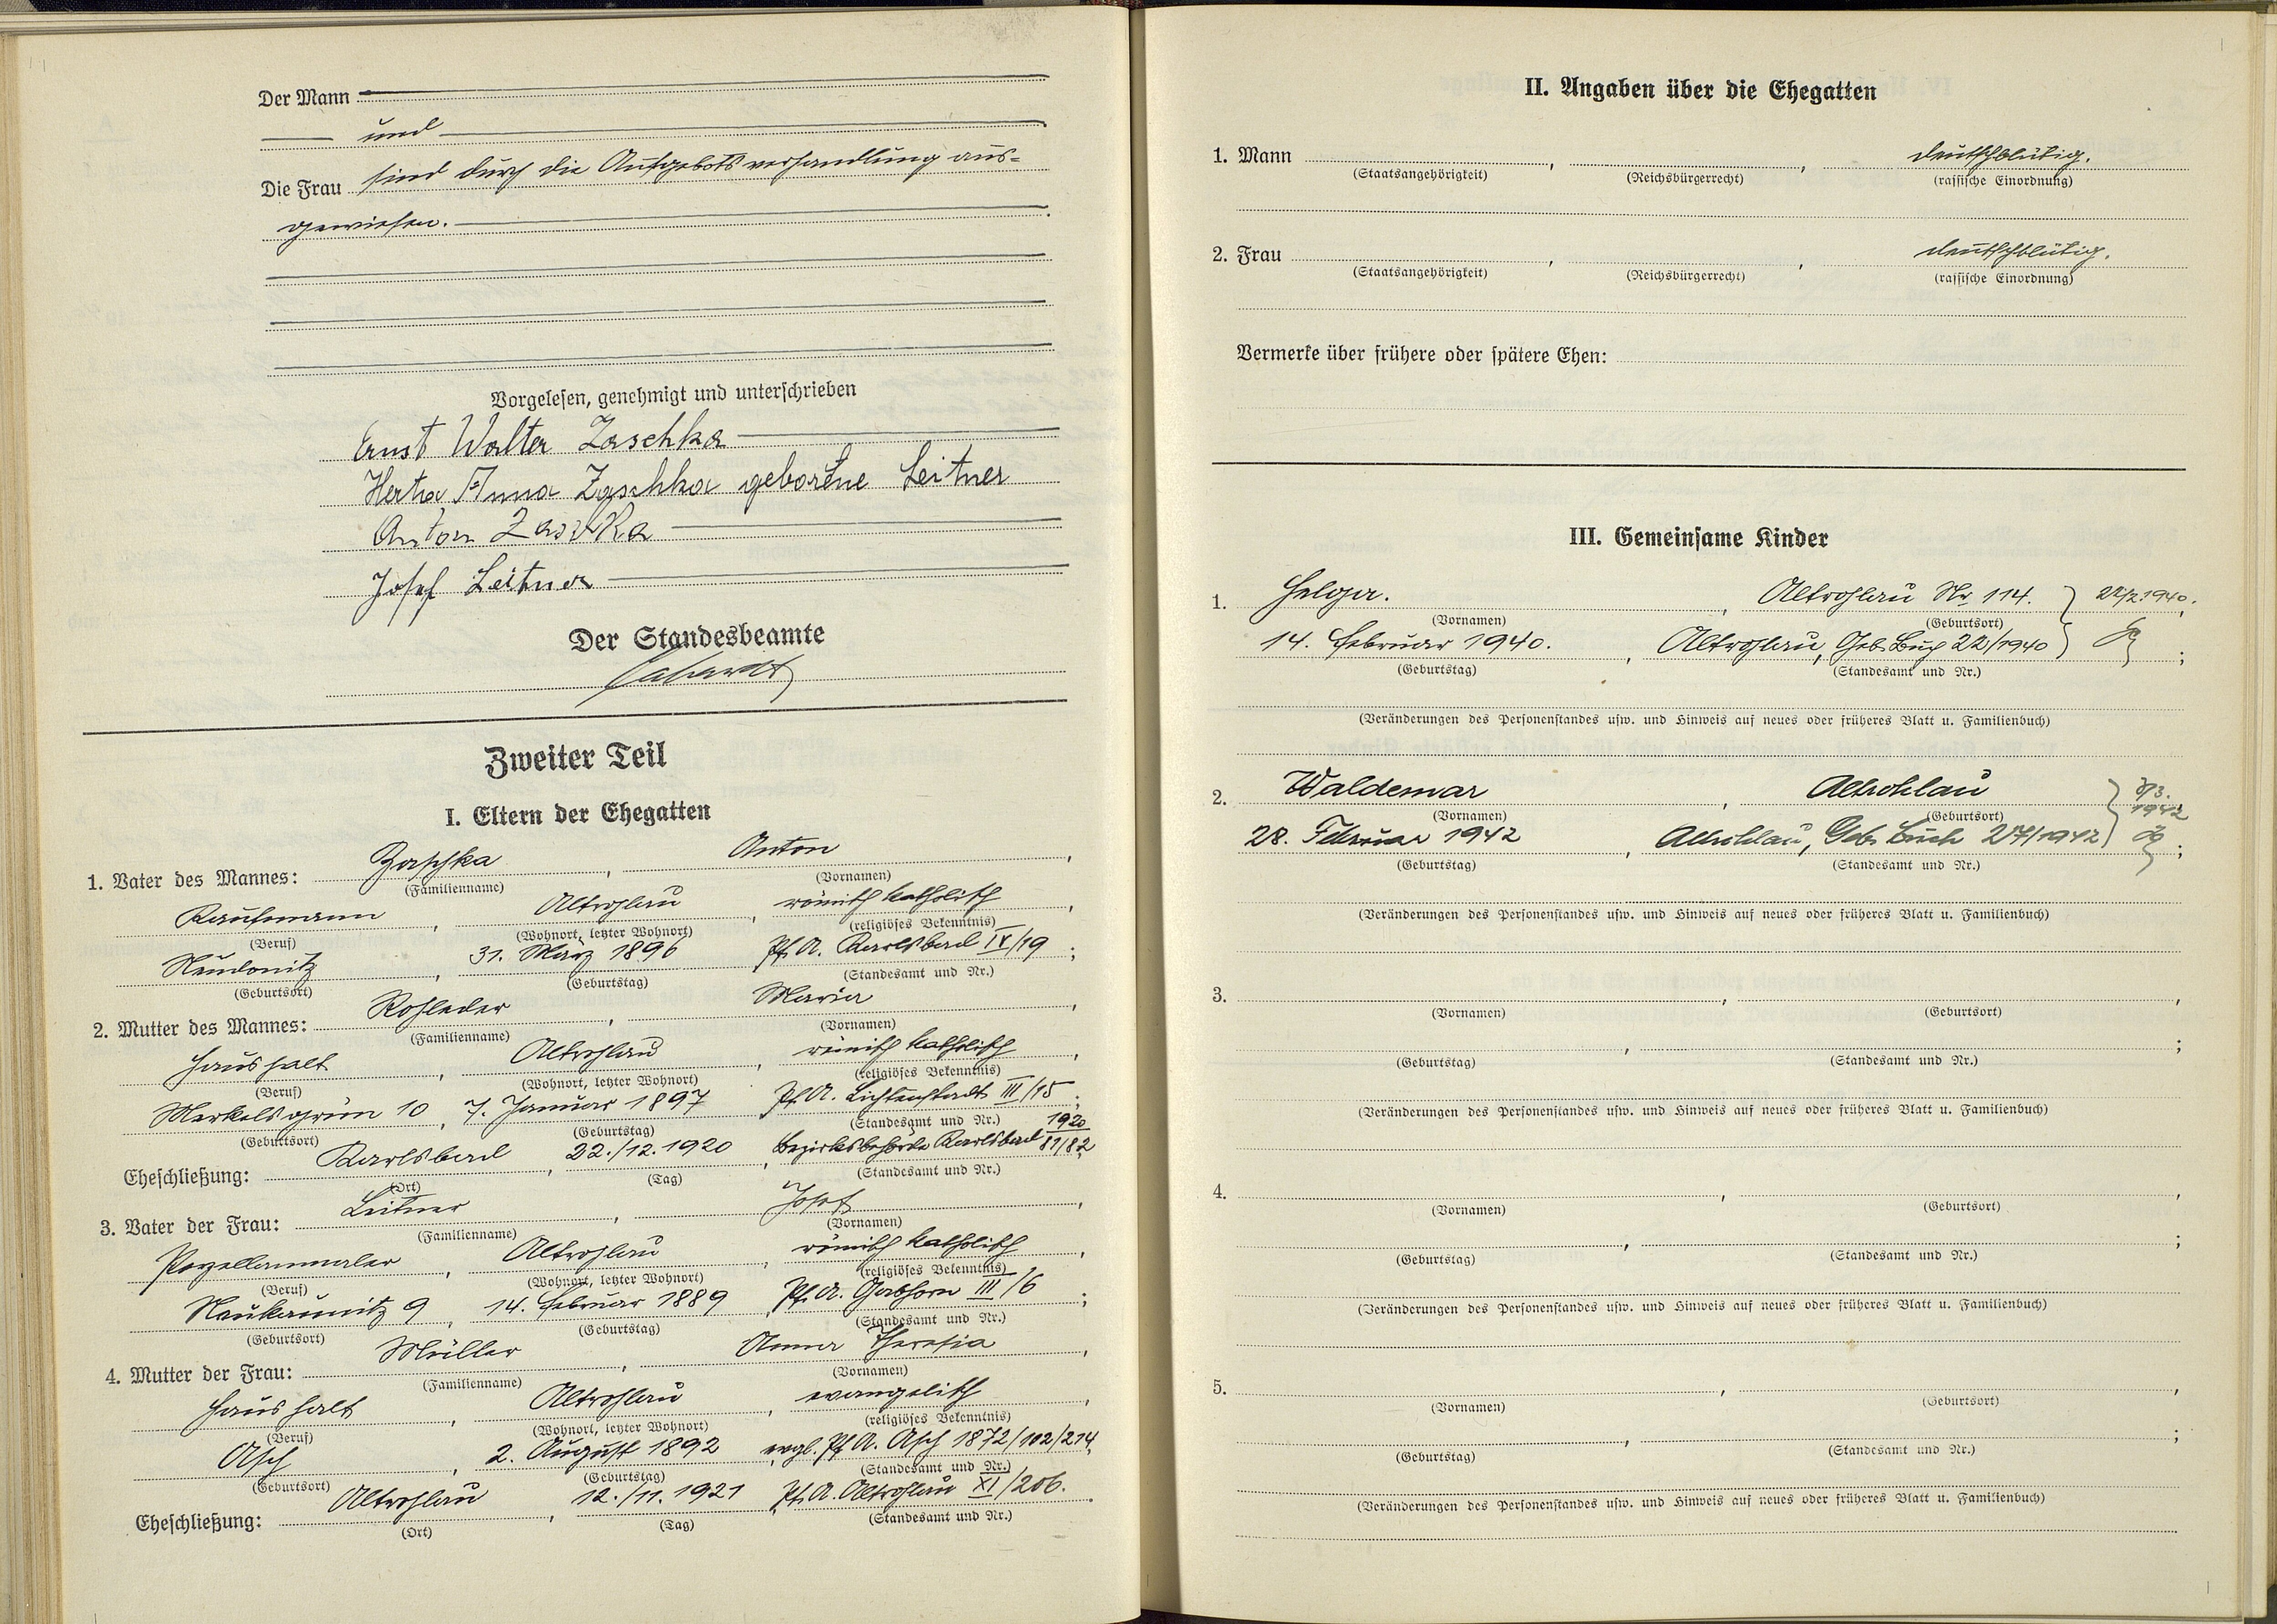 Der Mann
und
Die Frau sind durch die Aufgebotsverhandlung aus-
gewiesen.
Vorgelesen, genehmigt und unterschrieben
Ernst Walter Zaschka
Herta Anna Zaschka geborene Leitner
Anton Zaschka
Josef Leitner
Der Standesbeamte
Zweiter Teil
I. Eltern der Ehegatten
1. Vater des Mannes: Zaschka, Anton,
(Familienname) (Vornamen)
Kaufmann, Altrohlau, römisch katholisch,
(Beruf) (Wohnort, letzter Wohnort) (religiöses Bekenntnis)
Neudonitz, 31. März 1896 Pf. A. Karlsbad IX/19;
(Geburtsort) (Geburtstag) (Standesamt und Nr.)
2. Mutter des Mannes: Rohleder, Maria,
(Familienname) (Vornamen)
Haushalt, Altrohlau, römisch katholisch,
(Beruf) (Wohnort, letzter Wohnort) (religiöses Bekenntnis)
Merkelsgrün 10, 7. Januar 1897 Pf. A. Lichtenstadt III/15;
(Geburtsort) (Geburtstag) (Standesamt und Nr.)
Eheschließung: Karlsbad, 22./12. 1920, Bezirksbehörde Karlsbad 1920 81/82,
(Ort) (Tag) (Standesamt und Nr.)
3. Vater der Frau: Leitner, Josef,
(Familienname) (Vornamen)
Porzellanmaler, Altrohlau, römisch katholisch,
(Beruf) (Wohnort, letzter Wohnort) (religiöses Bekenntnis)
Neukaunitz 9, 14. Februar 1889, Pf. A. Gabhorn III/6;
(Geburtsort) (Geburtstag) (Standesamt und Nr.)
4. Mutter der Frau: Müller, Anna Theresia,
(Familienname) (Vornamen)
Haushalt, Altrohlau, evangelisch,
(Beruf) (Wohnort, letzter Wohnort) (religiöses Bekenntnis)
Asch, 2. August 1892, evgl. Pf. A. Asch 1872/102/214,
(Geburtsort) (Geburtstag) (Standesamt und Nr.)
Eheschließung: Altrohlau, 12./11. 1921, Pf. A. Altrohlau XI/206.
(Ort) (Tag) (Standesamt und Nr.)
II. Angaben über die Ehegatten
1. Mann , , deutschblütig.
(Staatsangehörigkeit) (Reichsbürgerrecht) (rassische Einordnung)
2. Frau , , deutschblütig.
(Staatsangehörigkeit) (Reichsbürgerrecht) (rassische Einordnung)
Vermerke über frühere oder spätere Ehen:
III. Gemeinsame Kinder
1. Helga. , Altrohlau Nr. 114.
(Vornamen) (Geburtsort)
14. Februar 1940. , Altrohlau, Geb. Buch 22/1940 ;
(Geburtstag) (Standesamt und Nr.)
(Veränderungen des Personenstandes usw. und Hinweis auf neues oder früheres Blatt u. Familienbuch)
2. Waldemar , Altrohlau 3/3. 1942
(Vornamen) (Geburtsort)
28. Februar 1942 , Altrohlau, Geb. Buch 27/1942 ;
(Geburtstag) (Standesamt und Nr.)
(Veränderungen des Personenstandes usw. und Hinweis auf neues oder früheres Blatt u. Familienbuch)
3. , ,
(Vornamen) (Geburtsort)
, ;
(Geburtstag) (Standesamt und Nr.)
(Veränderungen des Personenstandes usw. und Hinweis auf neues oder früheres Blatt u. Familienbuch)
4. , ,
(Vornamen) (Geburtsort)
, ;
(Geburtstag) (Standesamt und Nr.)
(Veränderungen des Personenstandes usw. und Hinweis auf neues oder früheres Blatt u. Familienbuch)
5. , ,
(Vornamen) (Geburtsort)
, ;
(Geburtstag) (Standesamt und Nr.)
(Veränderungen des Personenstandes usw. und Hinweis auf neues oder früheres Blatt u. Familienbuch)